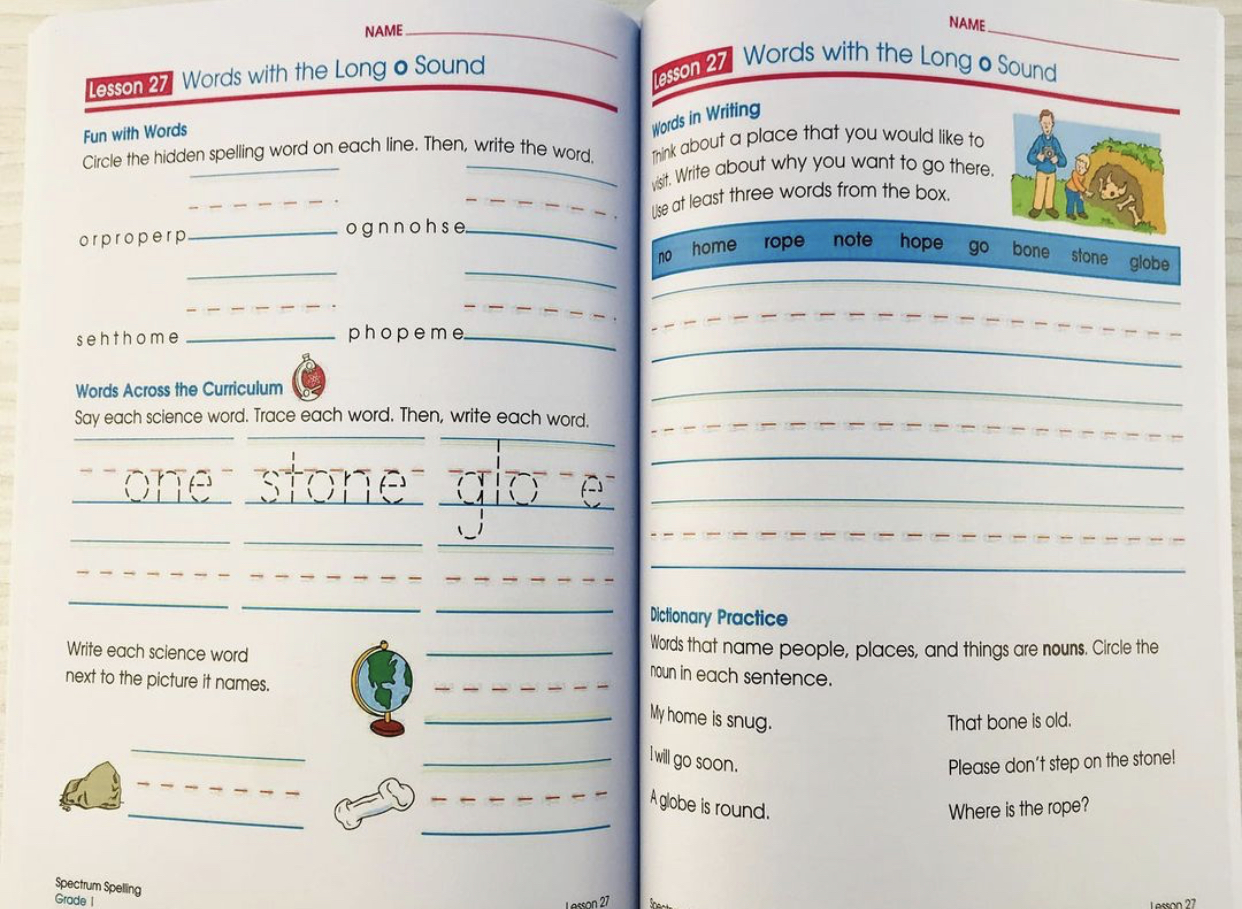 NAME
Lesson 27 Words with the Long o Sound
Fun with Words
Circle the hidden spelling word on each line. Then, write the word.
o r p r o p e r p
o g n n o h s e
s e h t h o m e
p h o p e m e
Words Across the Curriculum
Say each science word. Trace each word. Then, write each word.
one stone glo e
Write each science word
next to the picture it names.
Spectrum Spelling
Grade 1
Lesson 27
NAME
Lesson 27 Words with the Long o Sound
Words in Writing
Think about a place that you would like to
visit. Write about why you want to go there.
Use at least three words from the box.
no home rope note hope go bone stone globe
Dictionary Practice
Words that name people, places, and things are nouns. Circle the
noun in each sentence.
My home is snug.
I will go soon.
A globe is round.
That bone is old.
Please don't step on the stone!
Where is the rope?
Lesson 27